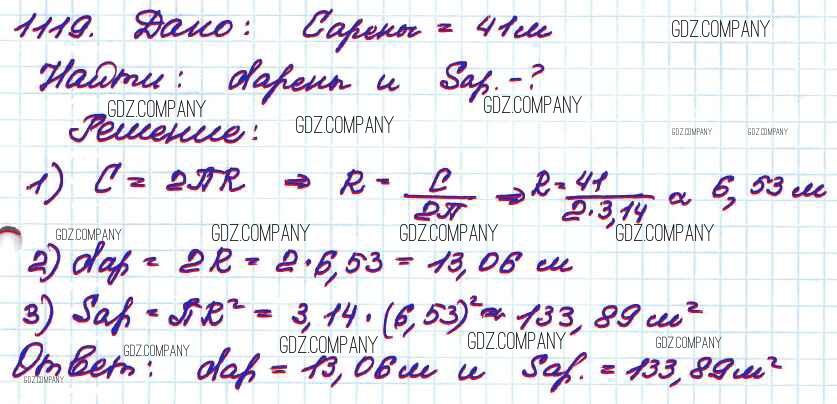 1119. Дано: Cарены = 41м GDZ.COMPANY
Найти: dарены и Sар. - ?
GDZ.COMPANY GDZ.COMPANY
Решение: GDZ.COMPANY GDZ.COMPANY GDZ.COMPANY
1) C = 2πR ⇒ R = C/2π ⇒ R = 41/2·3,14 ≈ 6,53 м
GDZ.COMPANY GDZ.COMPANY GDZ.COMPANY GDZ.COMPANY
2) dар = 2R = 2·6,53 = 13,06 м
3) Sар = πR² = 3,14·(6,53)² ≈ 133,89 м²
GDZ.COMPANY GDZ.COMPANY GDZ.COMPANY GDZ.COMPANY
Ответ: dар = 13,06 м и Sар. = 133,89 м²
GDZ.COMPANY